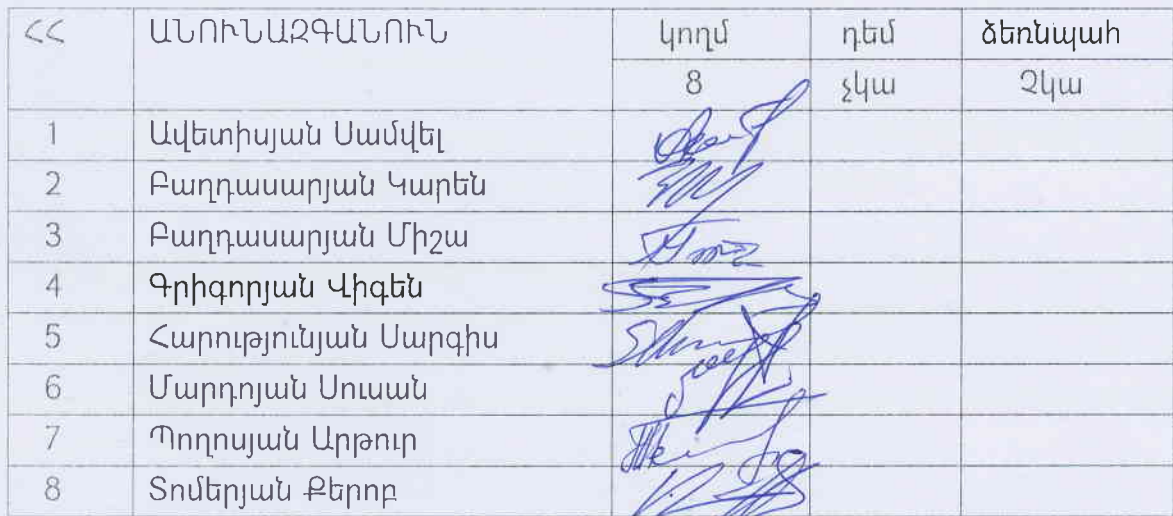 ՀՀ ԱՆՈՒՆԱԶԳԱՆՈՒՆ կողմ դեմ ձեռնպահ
8 չկա Չկա
1 Ավետիսյան Սամվել
2 Բաղդասարյան Կարեն
3 Բաղդասարյան Միշա
4 Գրիգորյան Վիգեն
5 Հարությունյան Սարգիս
6 Մարդոյան Սուսան
7 Պողոսյան Արթուր
8 Տոմերյան Քերոբ